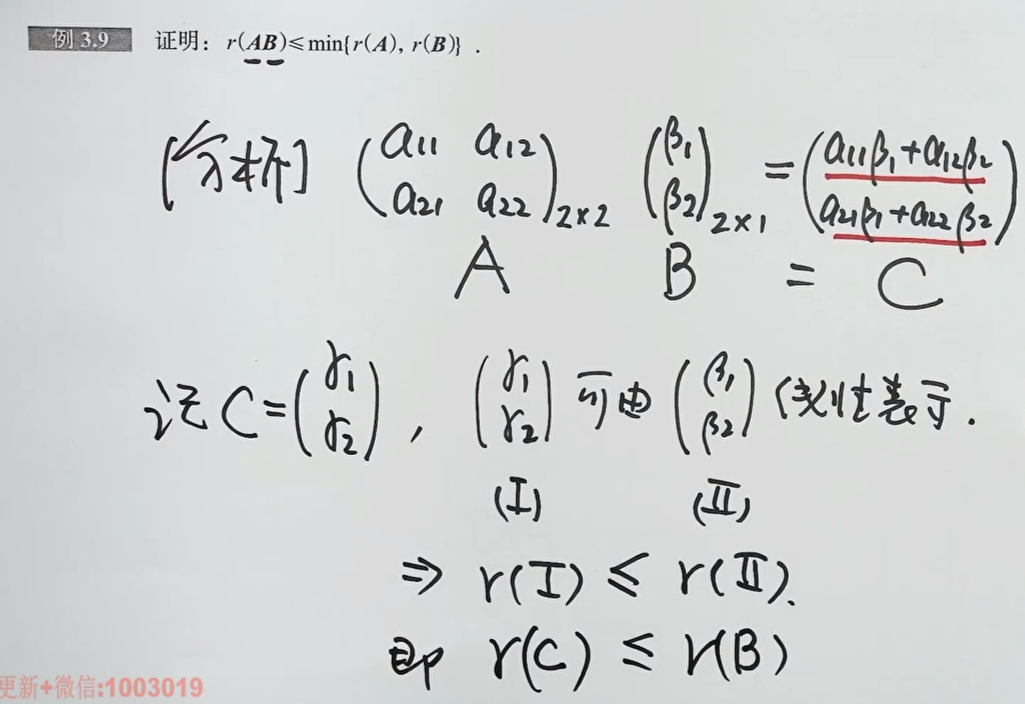 例 3.9 证明：r(AB)≤min{r(A), r(B)} .
[分析] (a11 a12 a21 a22)2×2 (β1 β2)2×1 = (a11β1+a12β2 a21β1+a22β2)
A B = C
记 C=(γ1 γ2), (γ1 γ2) 可由 (β1 β2) 线性表示.
(I) (II)
⇒ r(I) ≤ r(II).
即 r(C) ≤ r(B)
更新+微信:1003019